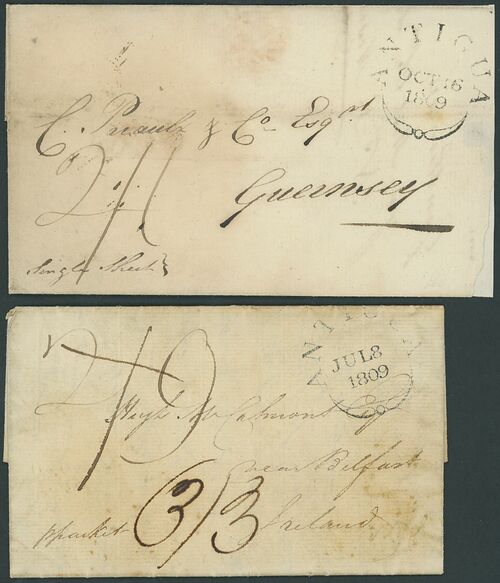 ANTIGUA
OCT 16
1809
C. Priaulx & Co Esqrs
2/11
Guernsey
Single Sheet
ANTIGUA
JUL 8
1809
Hugh McCalmont Esq
near Belfast
3/3
Ireland
p packet